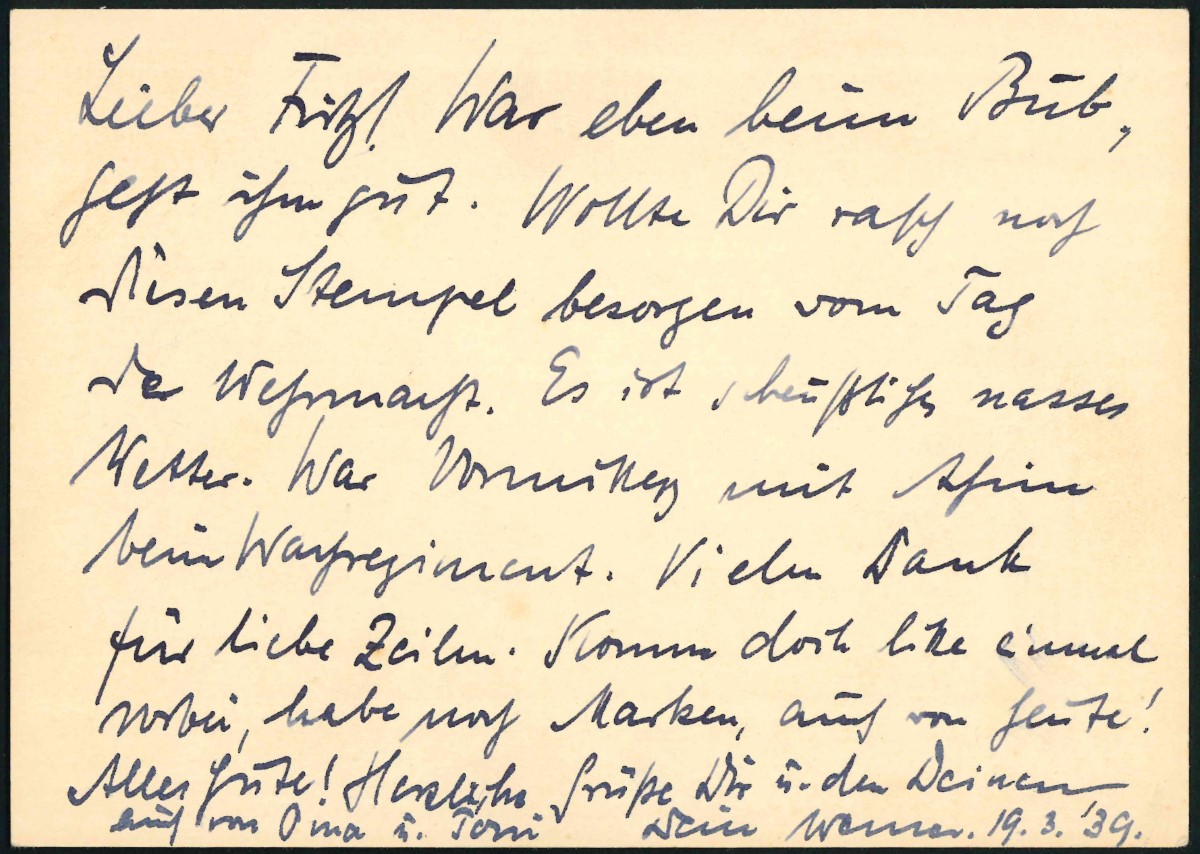 Lieber Fritz! War eben beim Bub,
geht ihm gut. Wollte Dir rasch noch
diesen Stempel besorgen vom Tag
der Wehrmacht. Es ist scheußliches nasses
Wetter. War Vormittag mit
beim Wachregiment. Vielen Dank
für liebe Zeilen. Komm doch bitte einmal
vorbei, habe noch Marken, auch von heute!
Alles Gute! Herzliche Grüße Dir u. den Deinen
auch von Oma u. Toni Dein Werner. 19.3.'39.